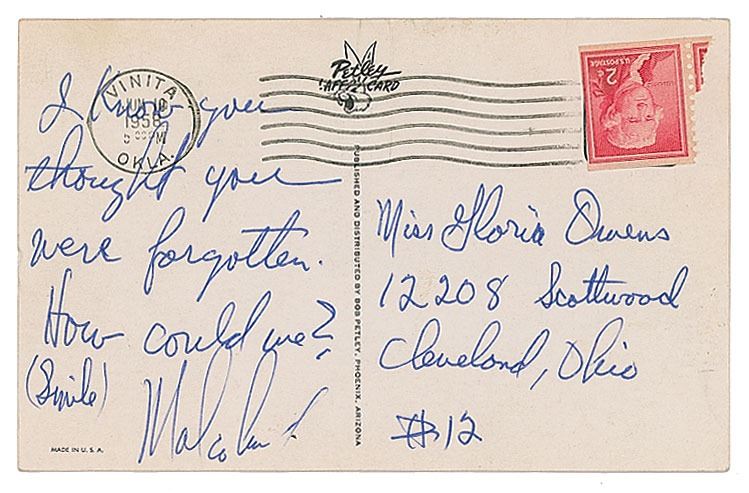 VINITA
JUN 10
1958
PM
OKLA.
Petley
CARD
2¢
U.S. POSTAGE
I know you
thought you
were forgotten.
How could we?
(Smile)
Malcolm X
PUBLISHED AND DISTRIBUTED BY BOB PETLEY, PHOENIX, ARIZONA
Miss Gloria Owens
12208 Scottwood
Cleveland, Ohio
#12
MADE IN U.S.A.